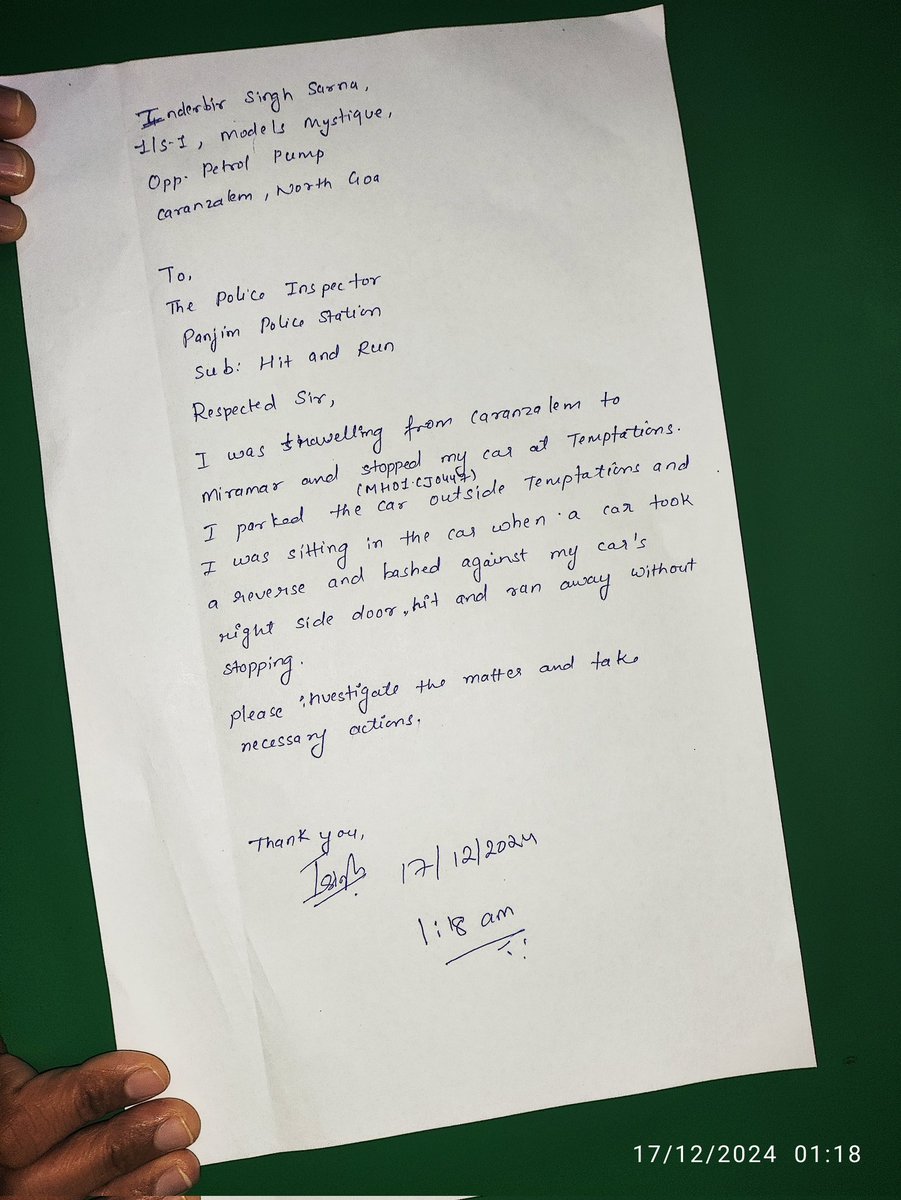 Inderbir Singh Sarna,
1/S-1, Models Mystique,
Opp. Petrol Pump
Caranzalem, North Goa
To,
The Police Inspector
Panjim Police Station
Sub: Hit and Run
Respected Sir,
I was travelling from Caranzalem to
Miramar and stopped my car at Temptations.
(MH01.CJ0447)
I parked the car outside Temptations and
I was sitting in the car when a car took
a reverse and bashed against my car's
right side door, hit and ran away without
stopping.
Please investigate the matter and take
necessary actions.
Thank you,
17/12/2024
1:18 am
17/12/2024 01:18